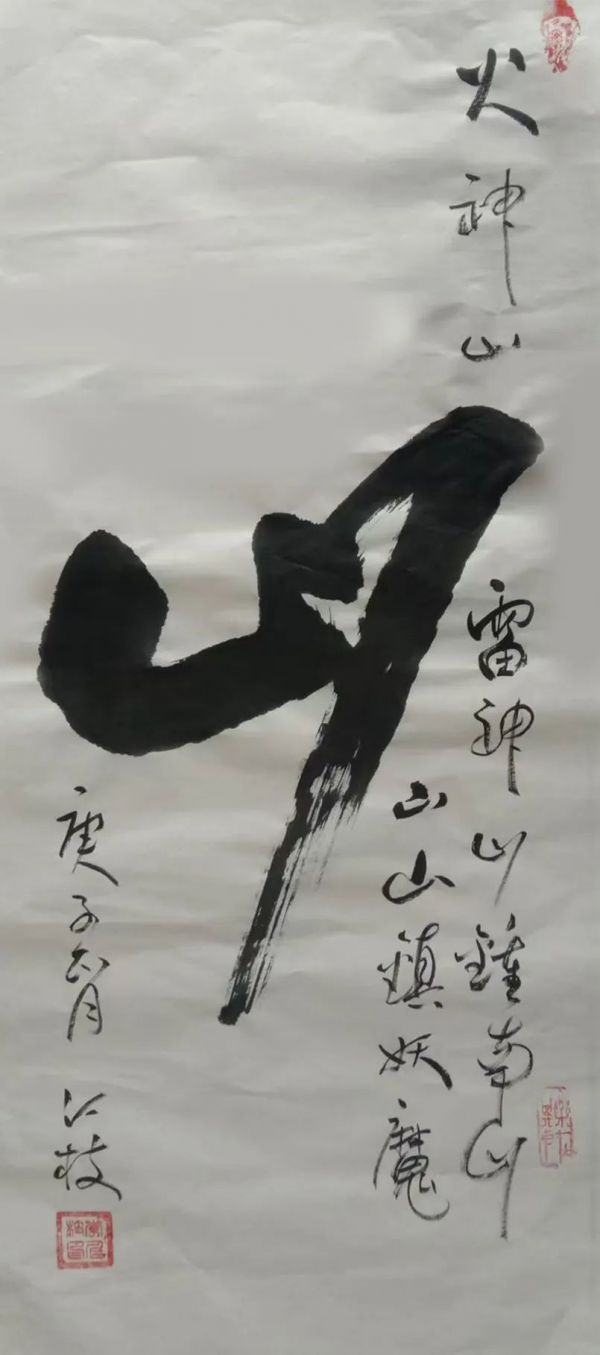 火神山
雷神山鍾南山
山山鎮妖魔
山
庚子正月
江枝